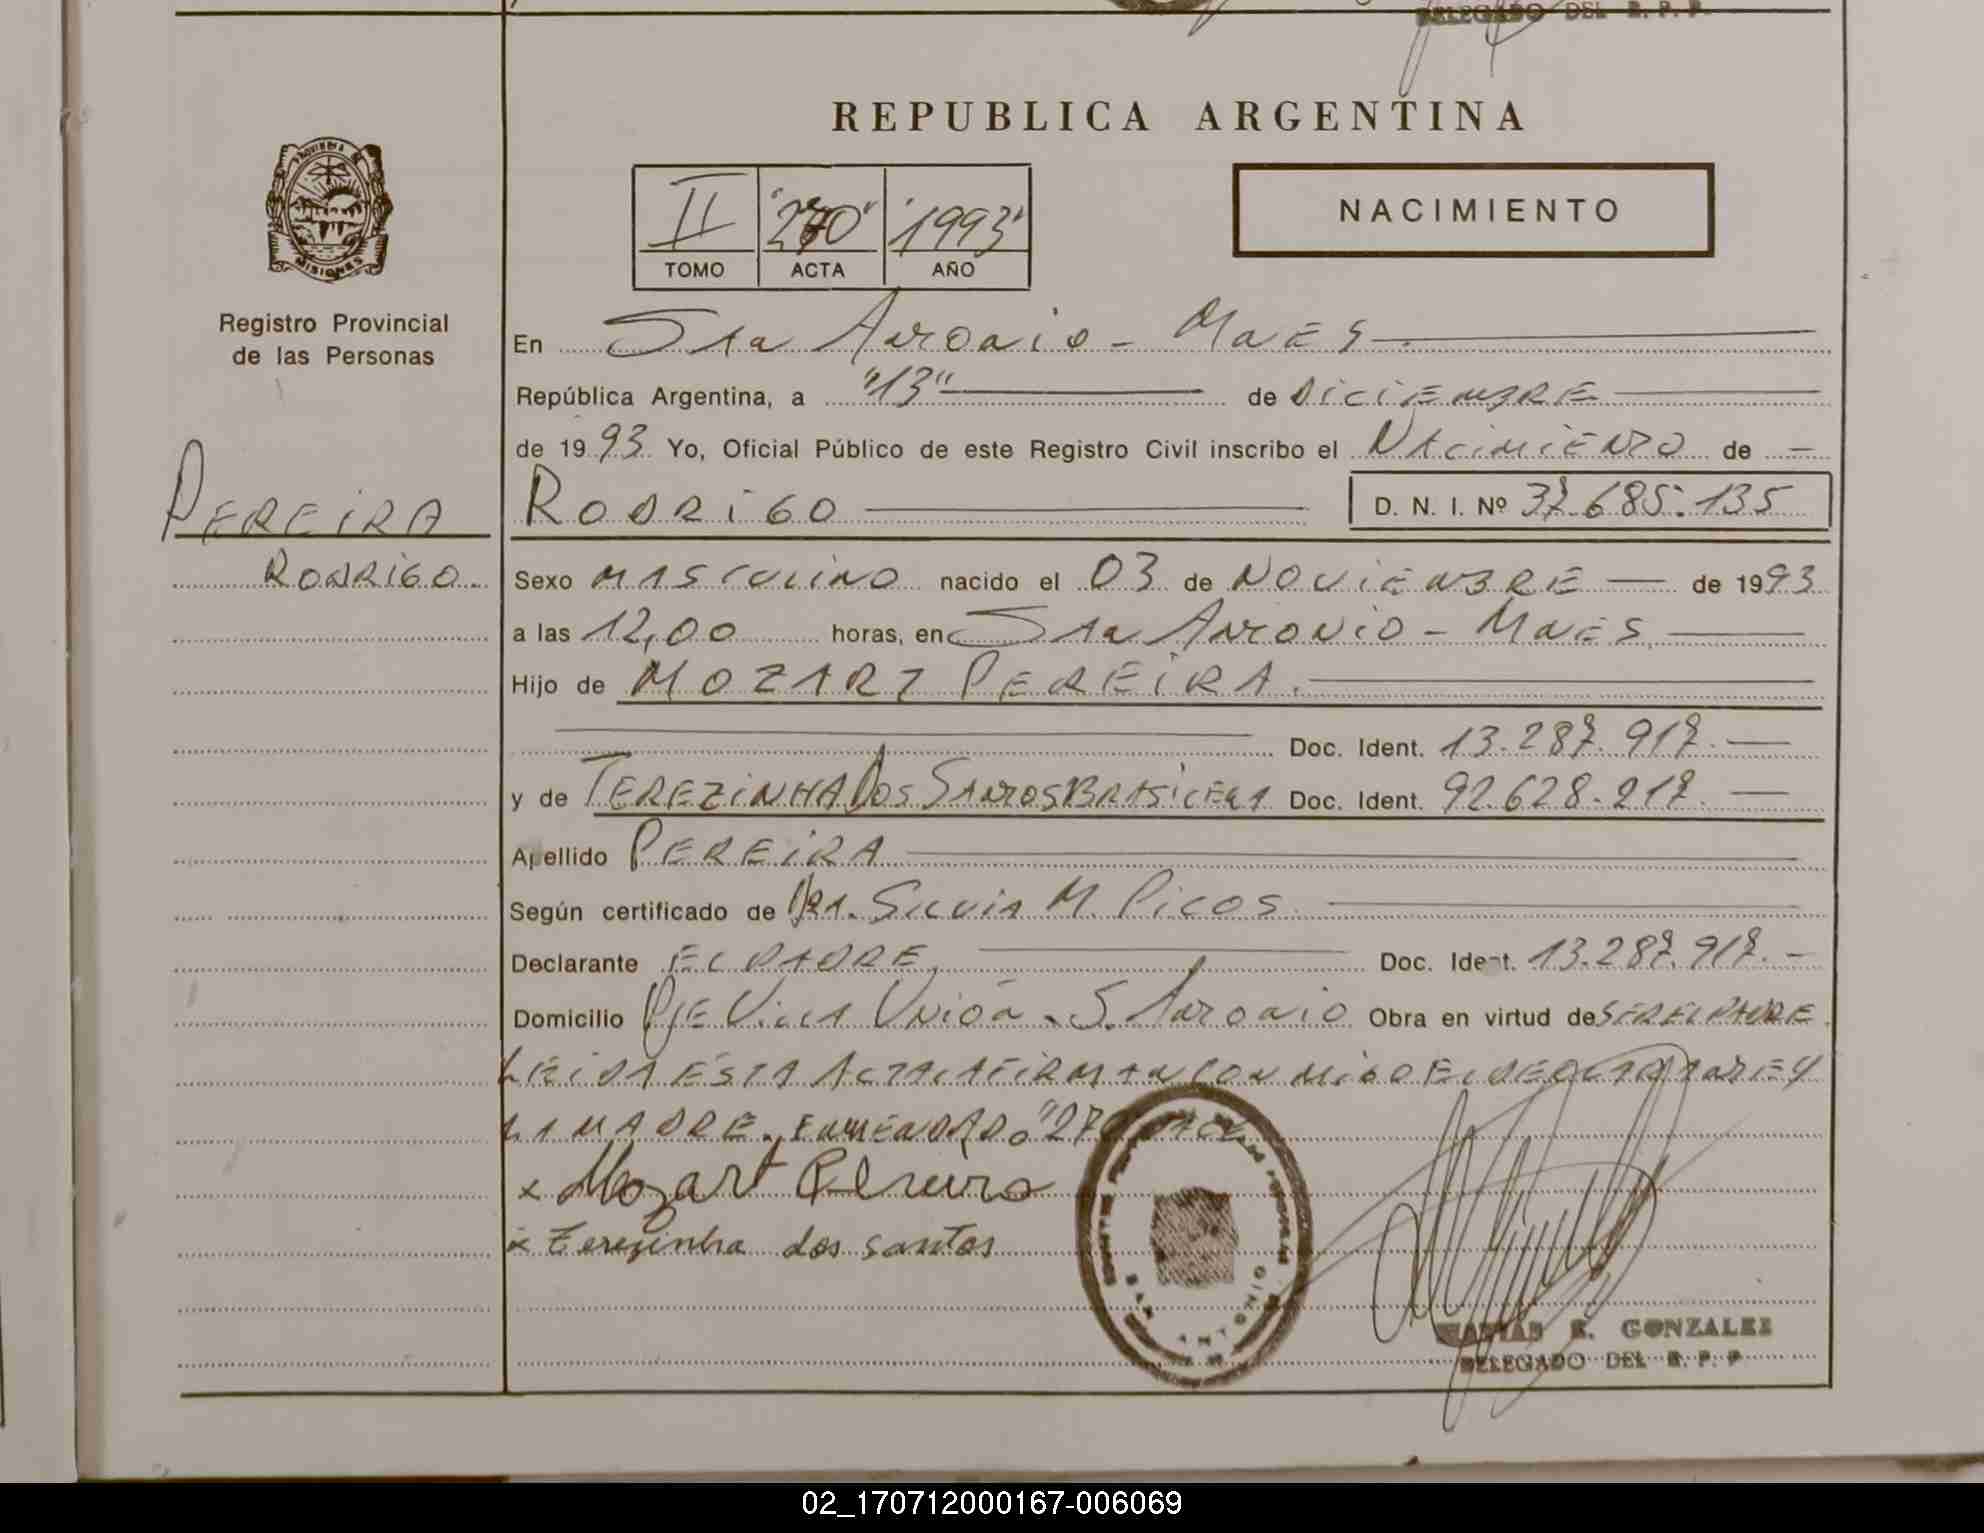 DELEGADO DEL R. P. P.
REPUBLICA ARGENTINA
PROVINCIA DE MISIONES
Registro Provincial
de las Personas
II "270" "1993"
TOMO ACTA AÑO
NACIMIENTO
En San Antonio - Mnes
República Argentina, a "13" de Diciembre
de 1993 Yo, Oficial Público de este Registro Civil inscribo el Nacimiento de -
PEREIRA
RODRIGO
RODRIGO D. N. I. Nº 37.685.135
Sexo MASCULINO nacido el 03 de NOVIEMBRE de 1993
a las 12,00 horas, en San Antonio - Mnes
Hijo de MOZART PEREIRA.
Doc. Ident. 13.287.917.-
y de TEREZINHA DOS SANTOS BRASILERA Doc. Ident. 92.628.217.-
Apellido PEREIRA
Según certificado de Dra. Silvia M. Picos
Declarante EL PADRE, Doc. Ident. 13.287.917.-
Domicilio Pje Villa Unión - S. Antonio Obra en virtud de SER EL PADRE.
LEIDA ESTA ACTA LA FIRMAN CONMIGO EL DECLARANTE Y
LA MADRE. ENMENDADO "270" VALE
x Mozart Pereira
x Terezinha dos santos
SAN ANTONIO
E. GONZALEZ
DELEGADO DEL R. P. P.
02_170712000167-006069